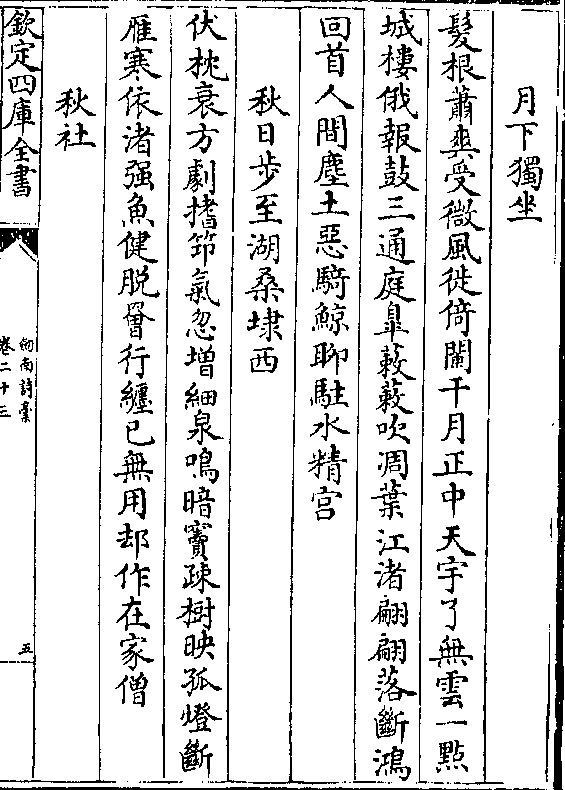 月下獨坐
髮根蕭爽受微風徙倚闌干月正中天宇了無雲一點
城樓俄報鼓三通庭臯蔌蔌吹凋葉江渚翩翩落斷鴻
回首人間塵土惡騎鯨聊駐水精宫
秋日步至湖桑埭西
伏枕衰方劇搘筇氣忽增細泉鳴暗竇疎樹映孤燈斷
雁寒依渚强魚健脱罾行纏已無用却作在家僧
秋社
欽定四庫全書
劒南詩稾
卷二十三
五